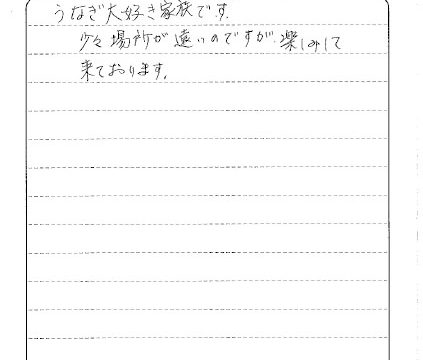 うなぎ大好き家族です.
少々場所が遠いのですが、楽しみして
来ております。